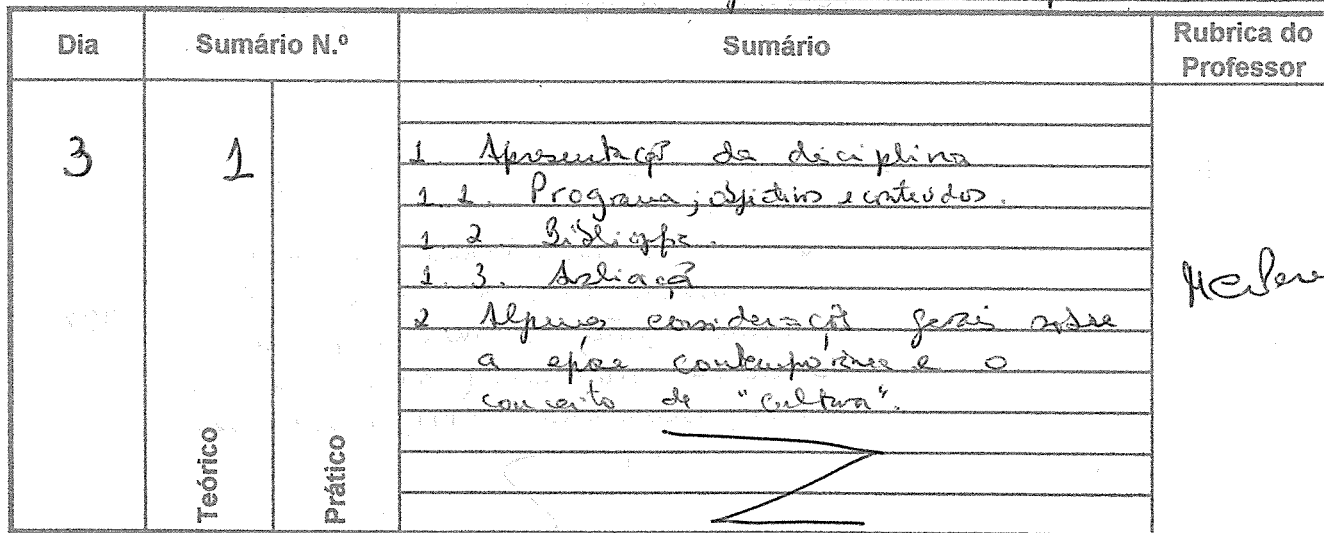 Dia Sumário N.º Sumário Rubrica do Professor
3 1
Teórico Prático
1 Apresentação da disciplina
1.1. Programa; objectivos e conteúdos.
1.2. Bibliografia.
1.3. Avaliação
2 Algumas considerações gerais sobre
a época contemporânea e o
conceito de "cultura".